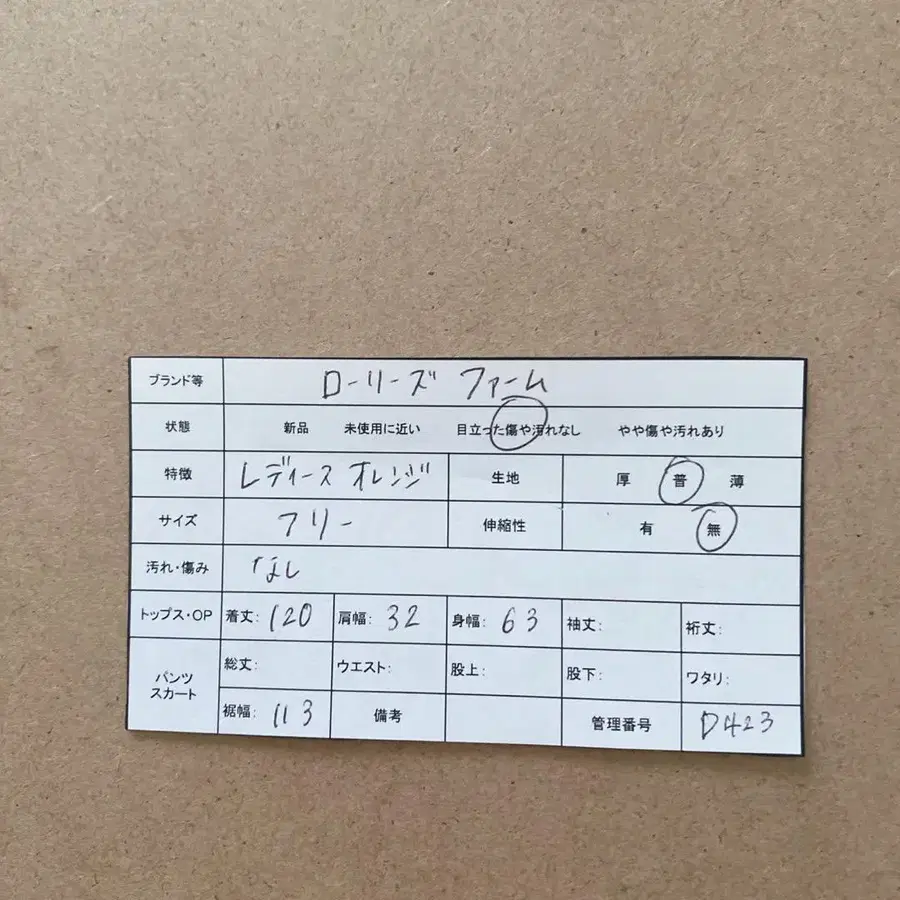 ブランド等 ローリーズ ファーム
状態 新品 未使用に近い 目立った傷や汚れなし やや傷や汚れあり
特徴 レディース オレンジ 生地 厚 普 薄
サイズ フリー 伸縮性 有 無
汚れ・傷み なし
トップス・OP 着丈: 120 肩幅: 32 身幅: 63 袖丈: 裄丈:
パンツ
スカート
総丈: ウエスト: 股上: 股下: ワタリ:
裾幅: 113 備考 管理番号 D423